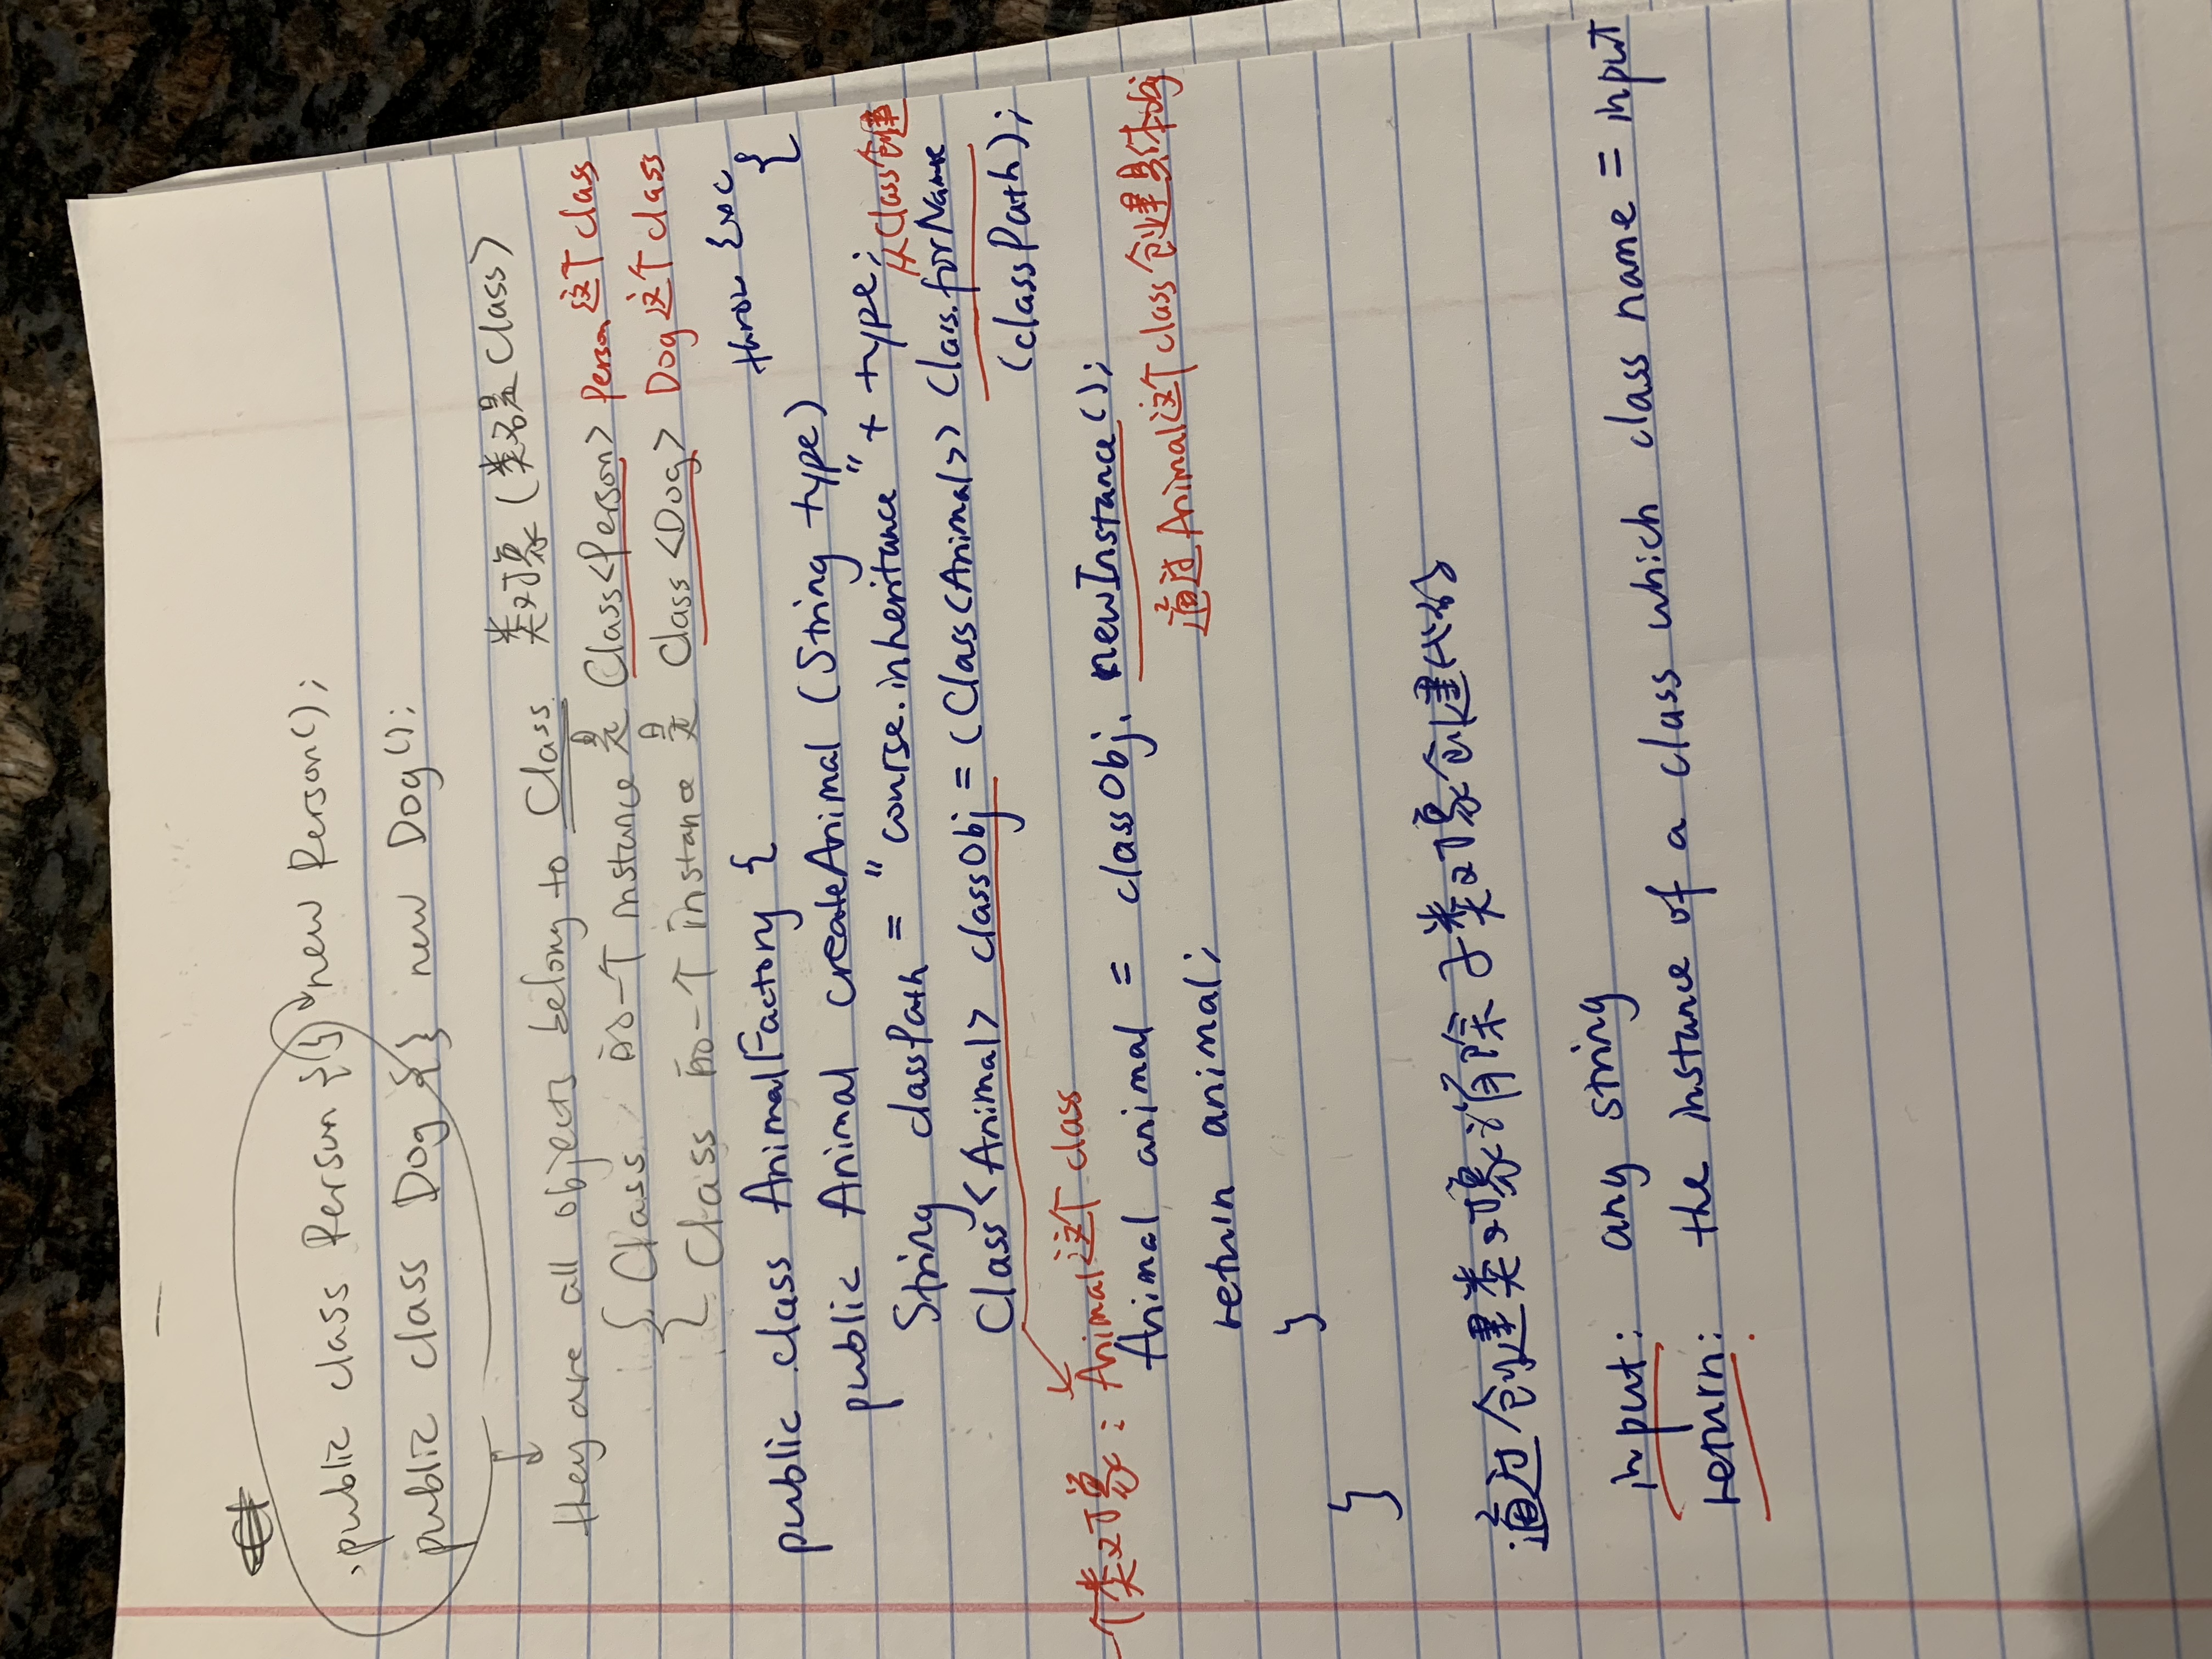 public class Person {} new Person();
public class Dog {} new Dog();
they are all objects belong to Class 类对象(类名是Class)
{ Class 的一个 instance 是 Class<Person> Person这个class
Class 的一个 instance 是 Class<Dog> Dog这个class
public class AnimalFactory {
throw Exc
public Animal createAnimal (String type) {
String classPath = "course.inheritance" + type;
从Class创建
Class<Animal> classObj = (Class<Animal>) Class.forName
(classPath);
一个类对象: Animal这个class
Animal animal = classObj. newInstance();
通过Animal这个class创建具体obj
return animal;
}
}
通过创建类对象消除子类对象创建代码
input: any string
return: the instance of a class which class name = input